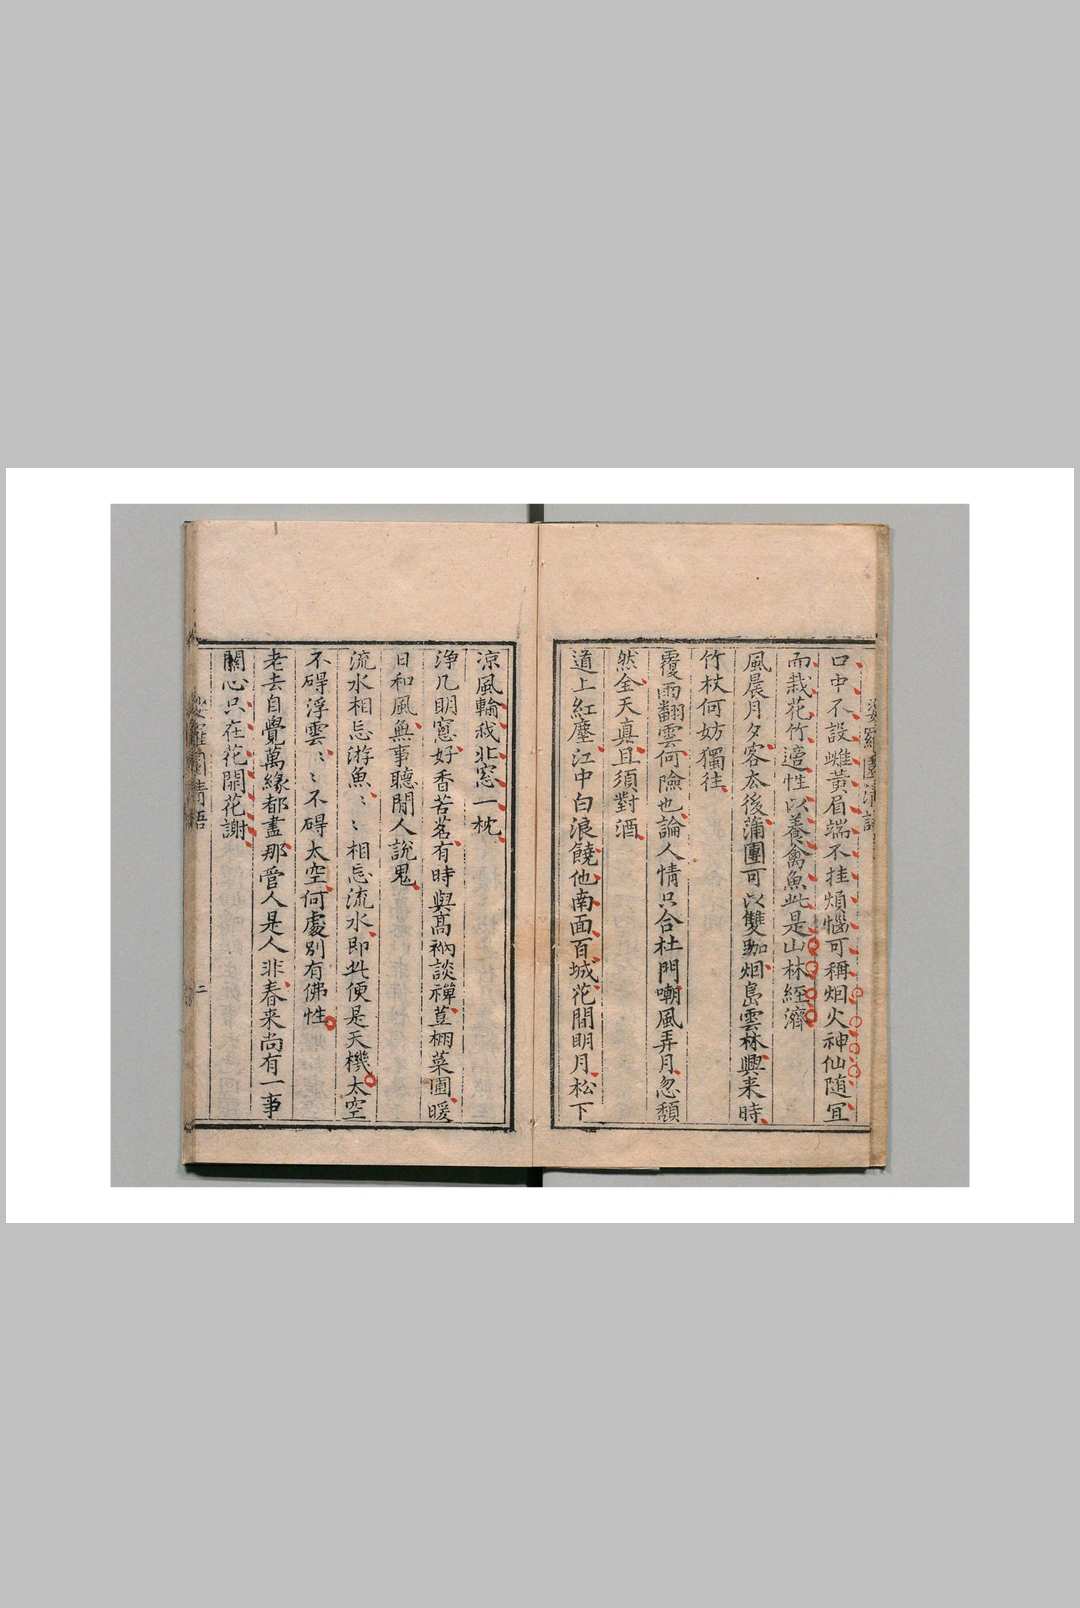 口中不設雌黃眉端不挂煩惱可稱烟火神仙随宜
而栽花竹適性以養禽魚此是山林經濟
風晨月夕客去後蒲團可以雙跏烟島雲林興来時
竹杖何妨獨往
覆雨翻雲何險也論人情只合杜門嘲風弄月忽頹
然全天真且須對酒
道上紅塵江中白浪饒他南面百城花間明月松下
凉風輸我北窓一枕
淨几明窓好香苦茗有時與高衲談禪荳棚菜圃暖
日和風無事聽閒人說鬼
流水相忘游魚〻〻相忘流水即此便是天機太空
不碍浮雲〻〻不碍太空何處別有佛性
老去自覺萬緣都盡那管人是人非春来尚有一事
關心只在花開花謝
娑羅園清語
二